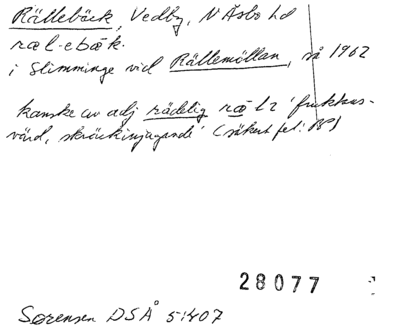 Rällebäck, Vedby, N Åsbo hd
ræl-ebæk.
i Slimminge vid Rällemöllan, så 1962
kanske av adj rädelig ræl2 'fruktans-
värd, skräckinjagande' (säkert fel: BP)
28077
Sørensen DSÅ 5:407